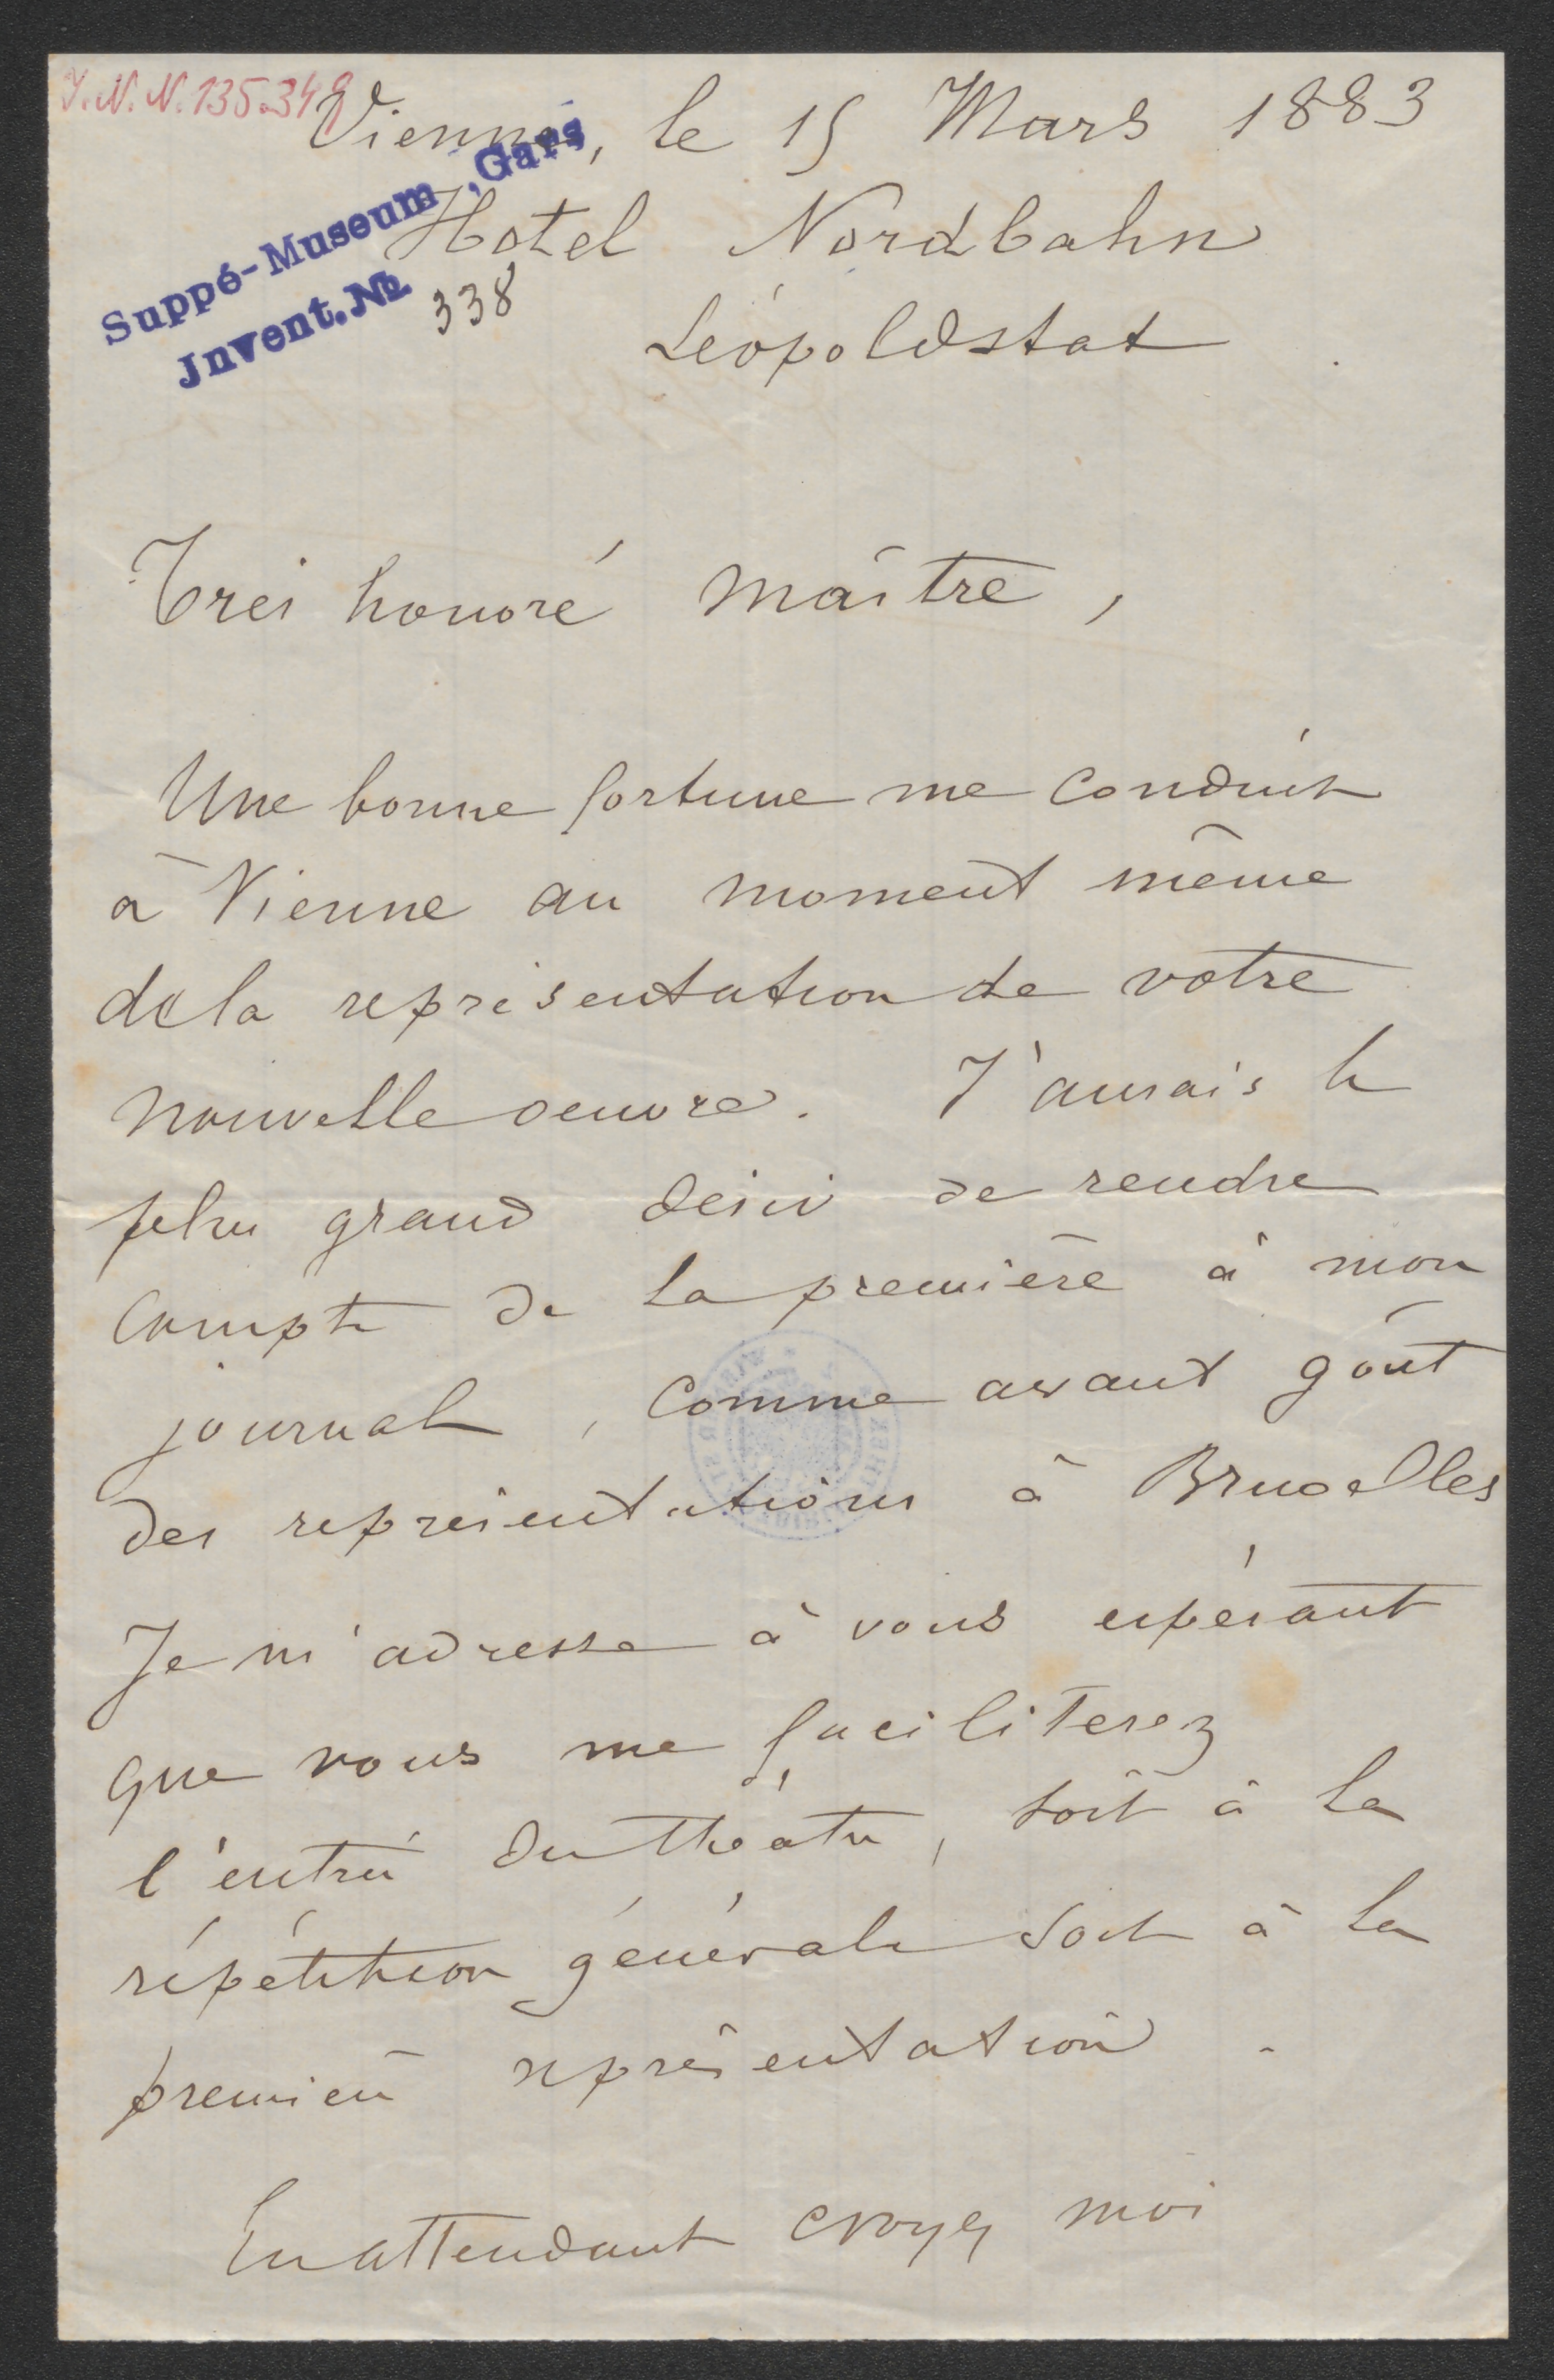 J.N.N. 135.349
Vienne, le 15 Mars 1883
Suppé-Museum, Gars
Jnvent. No 338
Hotel Nordbahn
Léopoldstat
Très honoré maître,
Une bonne fortune me conduit
à Vienne au moment même
de la représentation de votre
nouvelle oeuvre. J'aurais le
plus grand désir de rendre
compte de la première à mon
journal, comme avant goût
des représentations à Bruxelles
Je m'adresse à vous espérant
que vous me faciliterez
l'entrée du théâtre, soit à la
répétition générale soit à la
première représentation.
En attendant croyez moi